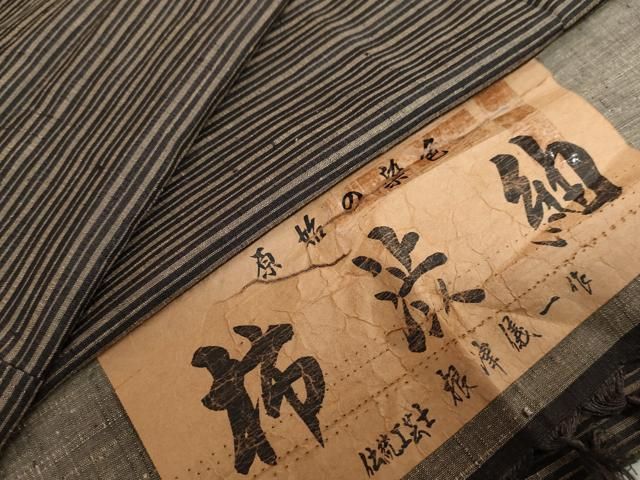 原始の染色
柿渋紬
伝統工芸士 根津儀一作